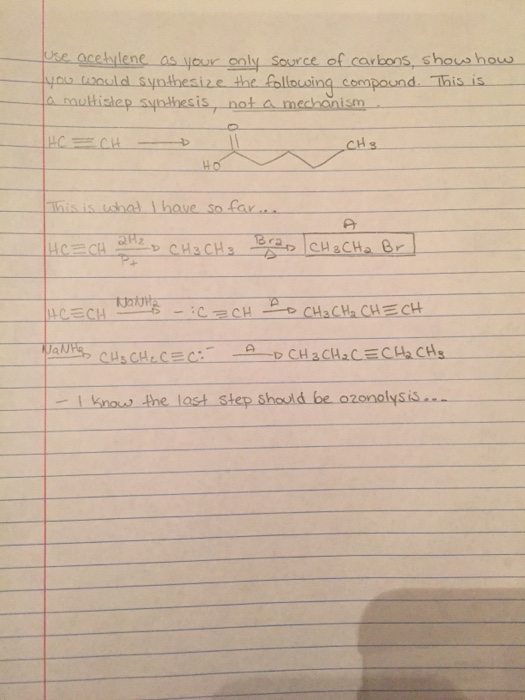 Use acetylene as your only source of carbons, show how
you would synthesize the following compound. This is
a multistep synthesis, not a mechanism.
O
HC≡CH → CH3
HO
This is what I have so far...
A
HC≡CH 2H2 → CH3CH3 Br2 → CH3CH2Br
Pt Δ
HC≡CH NaNH2 → -:C≡CH A → CH3CH2CH≡CH
NaNH2 → CH3CH2C≡C:- A → CH3CH2C≡CH2CH3
- I know the last step should be ozonolysis...